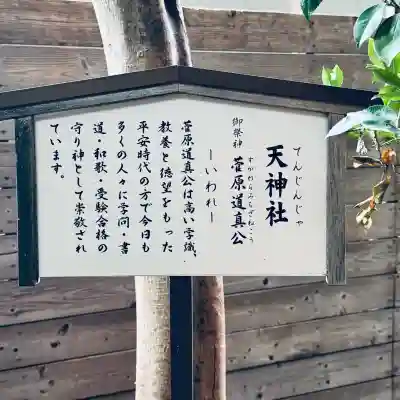 てんじんじゃ
天神社
御祭神 菅原道真公
すがわらみちざねこう
―いわれ―
菅原道真公は高い学識、
教養と徳望をもった
平安時代の方で今日も
多くの人々に学問・書
道・和歌・受験合格の
守り神として崇敬され
ています。